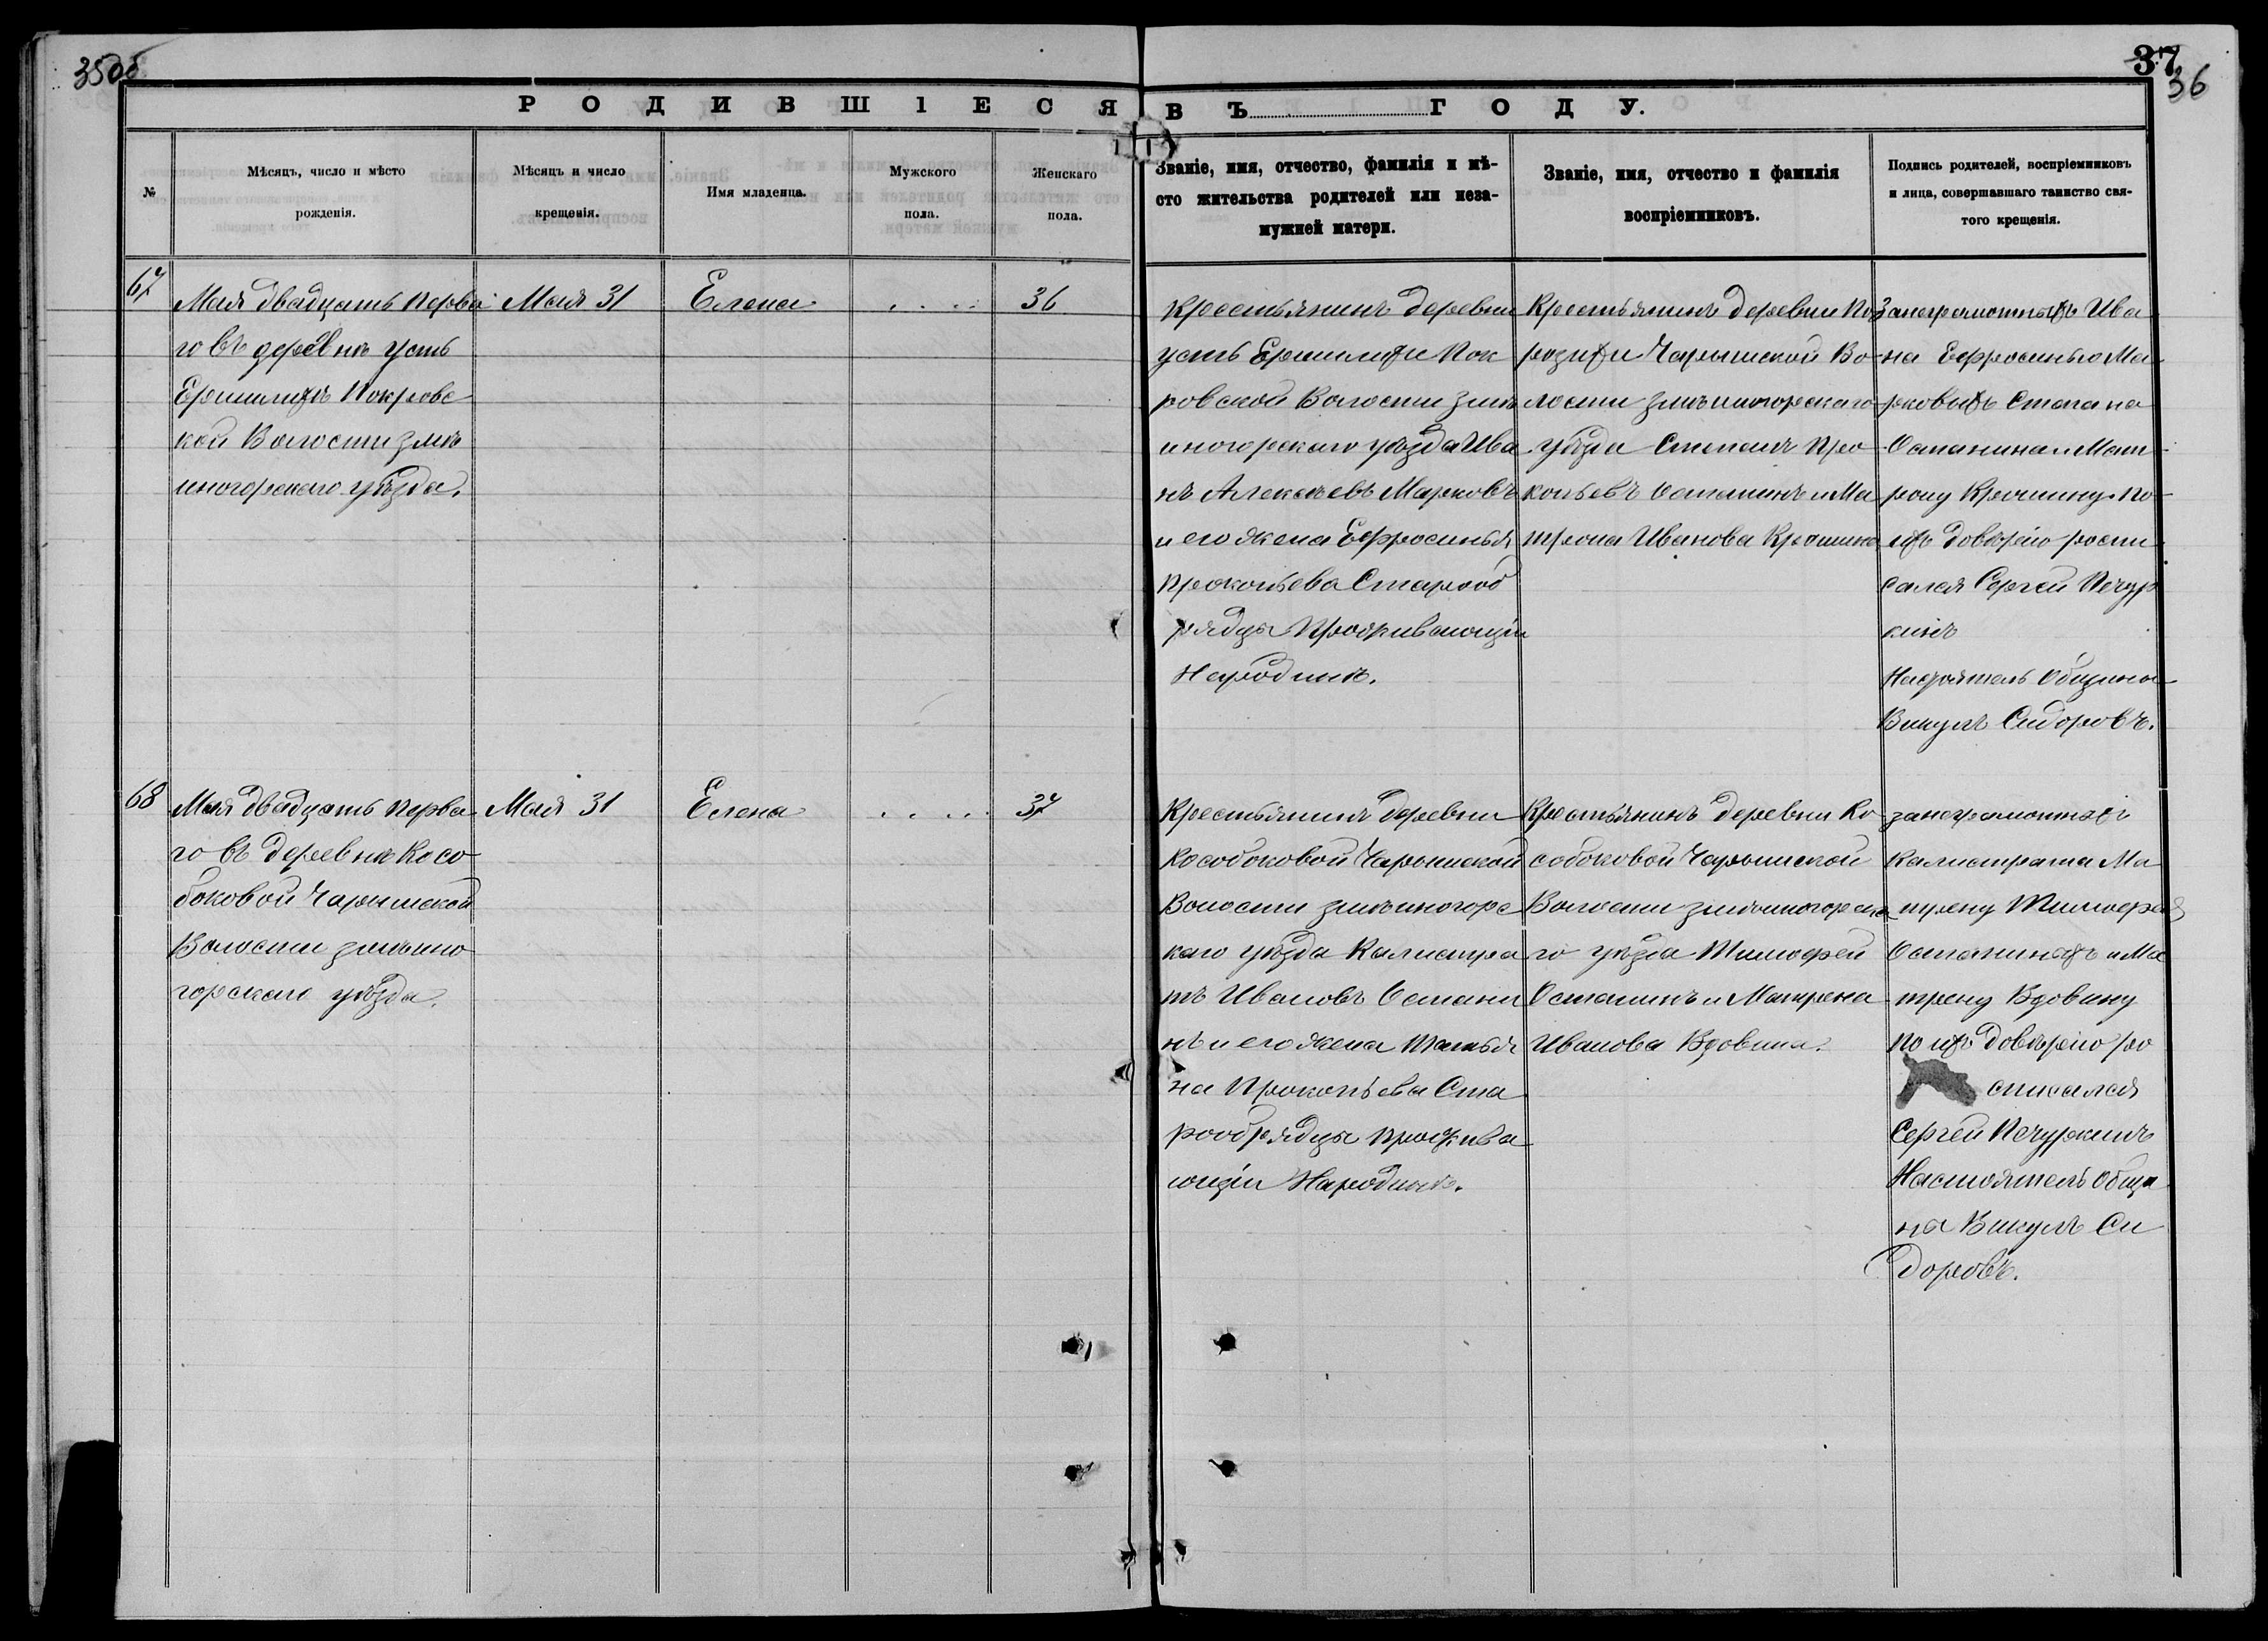 35об
37
36
РОДИВШІЕСЯ ВЪ ГОДУ.
№
Мѣсяцъ, число и мѣсто
рожденія.
Мѣсяцъ и число
крещенія.
Имя младенца.
Мужского
пола.
Женскаго
пола.
Званіе, имя, отчество, фамилія и мѣ-
сто жительства родителей или неза-
мужней матери.
Званіе, имя, отчество и фамилія
воспріемниковъ.
Подпись родителей, воспріемниковъ
и лица, совершавшаго таинство свя-
того крещенія.
67
Мая двадцать перва
го въ деревнѣ Усть
Ермилихѣ Покровс
кой Волости Змѣи
иногорскаго уѣзда.
Мая 31
Елена
. . . .
36
Крестьянинъ деревни
Усть Ермилихи Пок
ровской Волости Змѣ
иногорскаго уѣзда Ива
нъ Алексѣевъ Марковъ
и его жена Ефросинья
Прокопьева Старооб
рядцы Проживающіи
На родинѣ.
Крестьянинъ деревни По
розихи Чарышской Во
лости Змѣиногорскаго
уѣзда Степанъ Про
копьевъ Останинъ и Ма
трона Иванова Крошина
За неграмотныхъ Ива
на Ефросинью Ма
рковыхъ Степана
Останина и Мат
рону Крошину По
ихъ довѣрію роспи
сался Сергей Печур
кинъ
Настоятель Общины
Викулъ Сидоровъ.
68
Мая двадцать перва
го въ деревнѣ Косо
боковой Чарышской
Волости Змѣино
горскаго уѣзда.
Мая 31
Елена
. . . .
37
Крестьянинъ деревни
Кособоковой Чарышской
Волости Змѣиногорс
каго уѣзда Калистра
тъ Ивановъ Останин
нъ и его жена Татья
на Прокопьева Ста
рообрядцы прожива
ющіи На родинѣ.
Крестьянинъ деревни Ко
собоковой Чарышской
Волости Змѣиногорска
го уѣзда Тимофей
Останинъ и Матрена
Иванова Вдовина.
за неграмотныхъ
Калистрата Ма
трену Тимофея
Останиныхъ и Ма
трену Вдовину
По ихъ довѣрію ро
списался
Сергей Печуркинъ
Настоятель Общи
на Викулъ Си
доровъ.